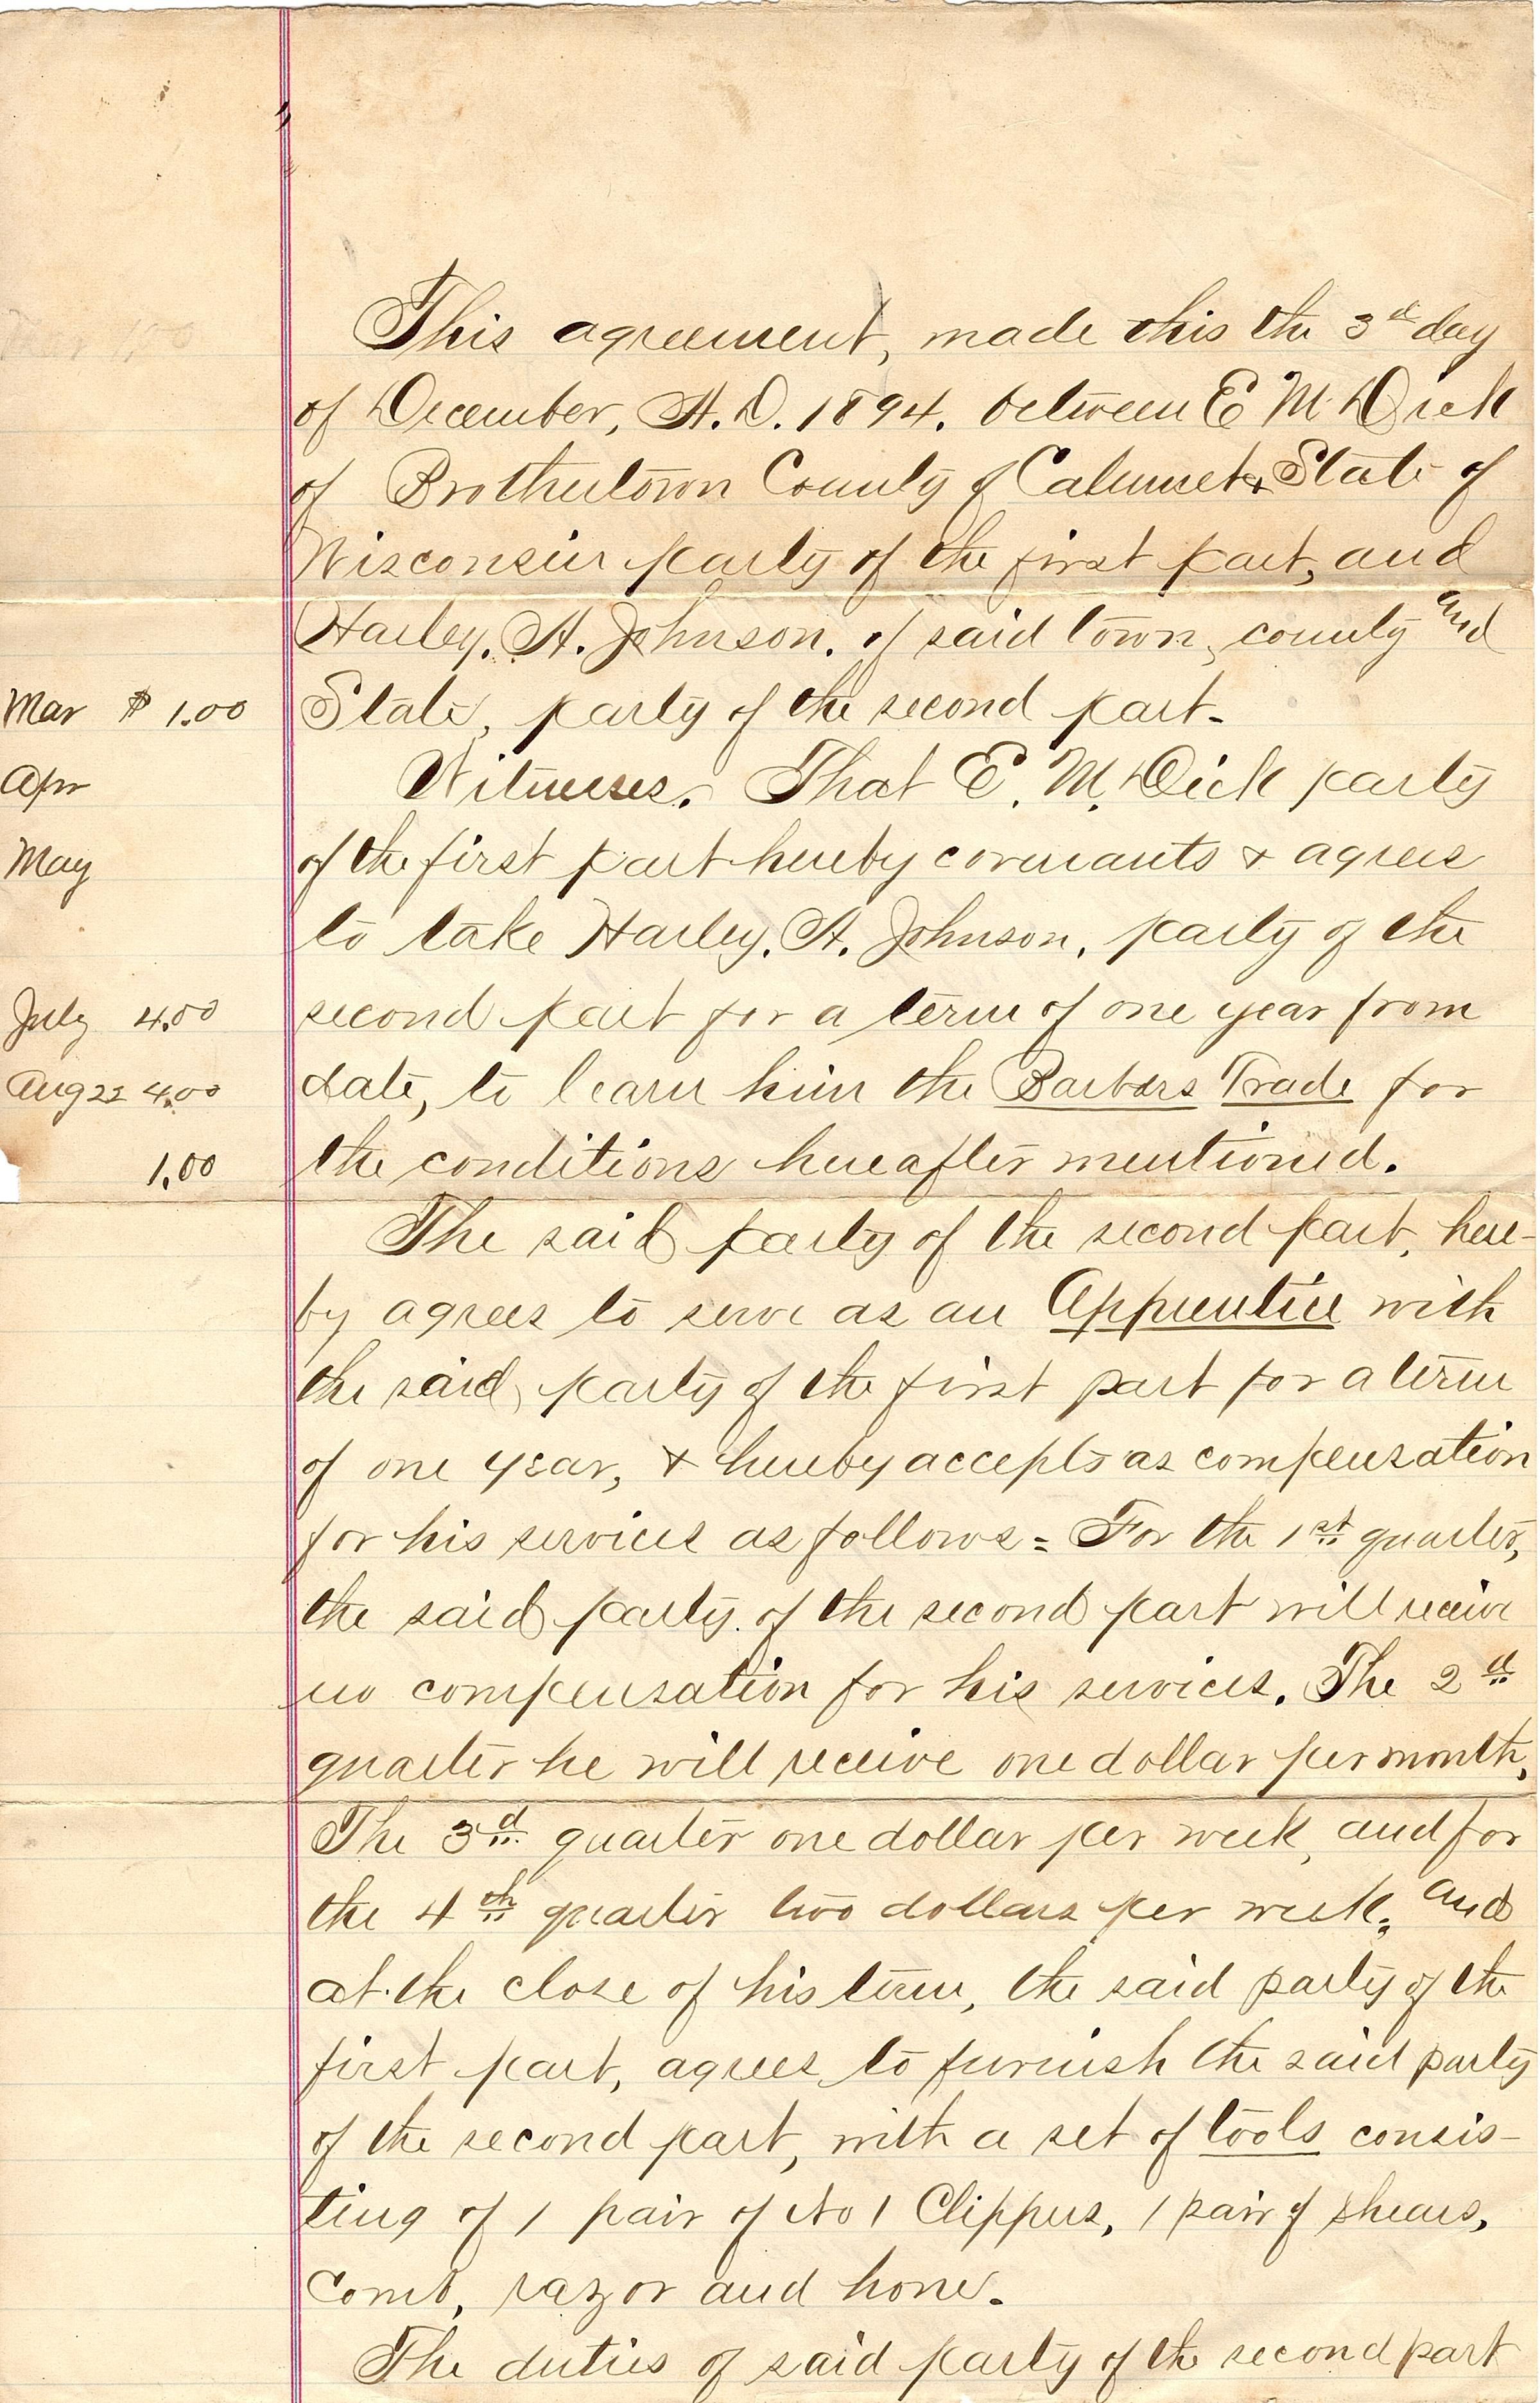 This agreement, made this the 3d day
of December, A.D. 1894. between E M Dick
of Brothertown County of Calumet & State of
Wisconsin party of the first part, and
Harley. A. Johnson. of said town, county and
Mar $ 1.00 State, party of the second part-
Apr Witnesses. That E. M. Dick party
May of the first part hereby covenants & agrees
to take Harley. A. Johnson, party of the
July 4.00 second part for a term of one year from
Aug 22 4.00 date, to learn him the Barbers Trade for
1.00 the conditions hereafter mentioned.
The said party of the second part, here-
by agrees to serve as an Apprentice with
the said party of the first part for a term
of one year, & hereby accepts as compensation
for his services as follows= For the 1st quarter,
the said party of the second part will receive
no compensation for his services. The 2d
quarter he will receive one dollar per month.
The 3d quarter one dollar per week, and for
the 4th quarter two dollars per week, and
at the close of his term, the said party of the
first part, agrees to furnish the said party
of the second part, with a set of tools consis-
ting of 1 pair of No 1 Clippers, 1 pair of shears,
Comb, razor and hone.
The duties of said party of the second part